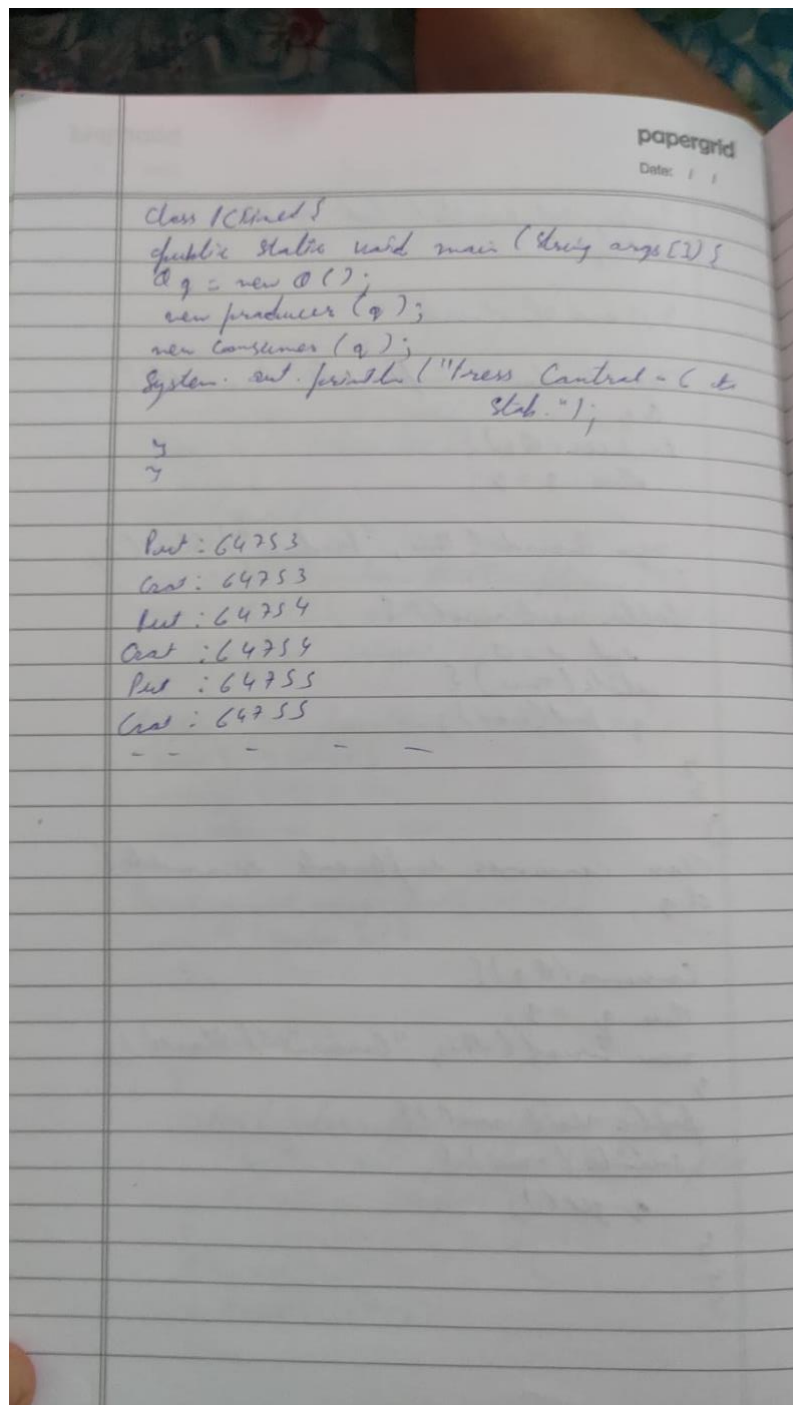 papergrid
Date: / /
Class PCFixed {
public static void main (String args[]) {
Q q = new Q();
new producer (q);
new consumer (q);
System. out. println ("Press Control - C to
stop.");
}
}
Put : 64753
Got : 64753
Put : 64754
Got : 64754
Put : 64755
Got : 64755
- - - - -